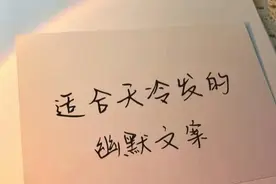 适合天冷发的
幽默文案